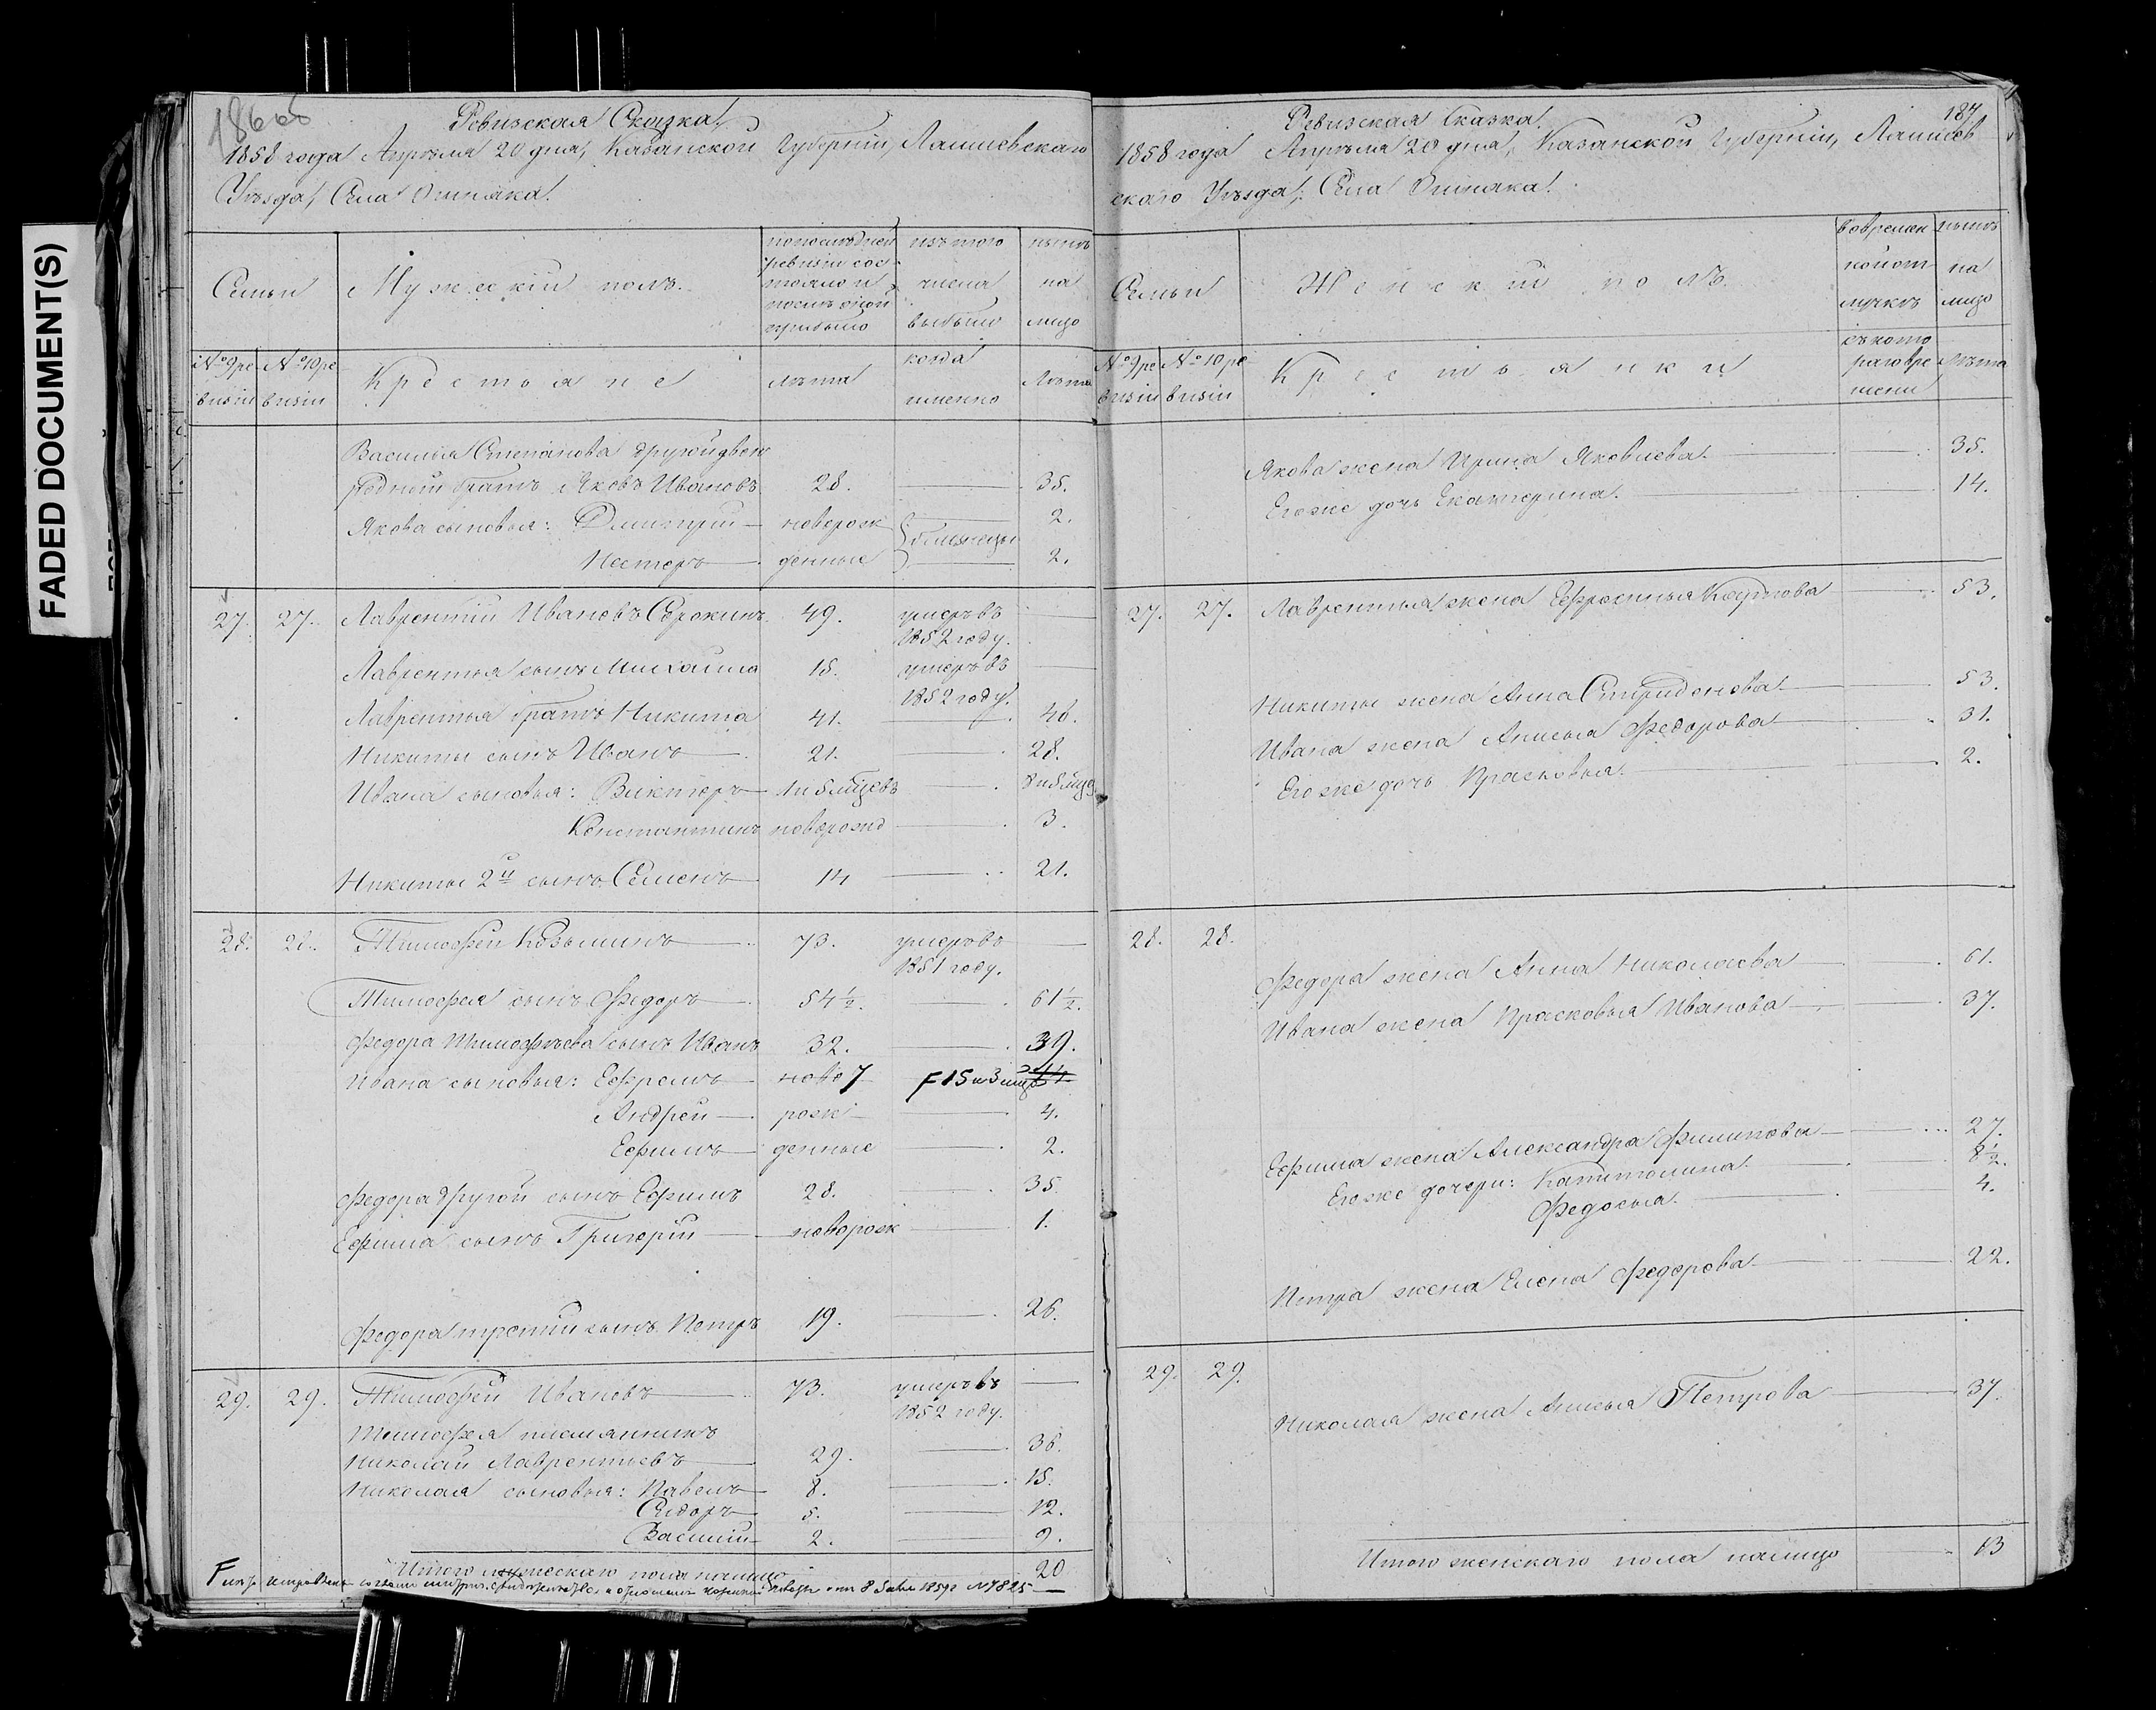 FADED DOCUMENT(S)
Ревизская Сказка.
1858 года Апрѣля 20 дня, Казанской Губерніи, Лаишевскаго
Уѣзда, Села
Семьи
Мужескій полъ.
по послѣдней ревизіи состояло и послѣ оной прибыло
изъ того числа выбыло
нынѣ на лицо
№ 9 ревизіи
№ 10 ревизіи
Крестьяне
лѣта
когда именно
Лѣта
Василья Степанова другой двою
родный братъ Яковъ Ивановъ 28. 35.
Якова сыновья: Дмитрій новорож 2.
близнецы
Несторъ денные 2.
27. 27. Лаврентій Ивановъ Сорокинъ 49. умеръ въ
1852 году.
Лаврентья сынъ Михайла 18. умеръ въ
1852 году.
Лаврентья братъ Никита 41. 48.
Никиты сынъ Иванъ 21. 28.
Ивана сыновья: Викторъ
Константинъ новорожд 3.
Никиты 2й сынъ Семенъ 14 21.
28. 28. Тимофей Козьминъ 73. умеръ въ
1851 году.
Тимофея сынъ Федоръ 54½. 61½.
Федора Тимофѣева сынъ Иванъ 32. 39.
Ивана сыновья: Ефремъ ново 7 F 15 и 3
Андрей рож 4.
Ефимъ денные 2.
Федора другой сынъ Ефимъ 28. 35.
Ефима сынъ Григорій новорож 1.
Федора третій сынъ Петръ 19. 26.
29. 29. Тимофей Ивановъ 73. умеръ въ
1852 году.
Тимофея племянникъ
Николай Лаврентьевъ 29. 36.
Николая сыновья: Павелъ 8. 15.
Сидоръ 5. 12.
Василій 2. 9.
Итого мужескаго пола налицо 20
187
Ревизская Сказка.
1858 года Апрѣля 20 дня, Казанской Губерніи, Лаишев
скаго Уѣзда, Села
Семьи
Женскій полъ.
во временной отлучкѣ
нынѣ на лицо
№ 9 ревизіи
№ 10 ревизіи
Крестьянки
съ котораго времени
Лѣта
Якова жена Ирина Яковлева. 35.
Его же дочь Екатерина. 14.
27. 27. Лаврентья жена Ефросинья 53.
Никиты жена Анна Спиридонова. 53.
Ивана жена Анисья Федорова 31.
Его же дочь Прасковья. 2.
28. 28.
Федора жена Анна Николаева 61.
Ивана жена Прасковья Иванова 37.
Ефима жена Александра Филипова 27.
Его же дочери: Капитолина. 8½.
Федосья. 4.
Петра жена Елена Федорова 22.
29. 29.
Николая жена Анисья Петрова 37.
Итого женскаго пола налицо 13